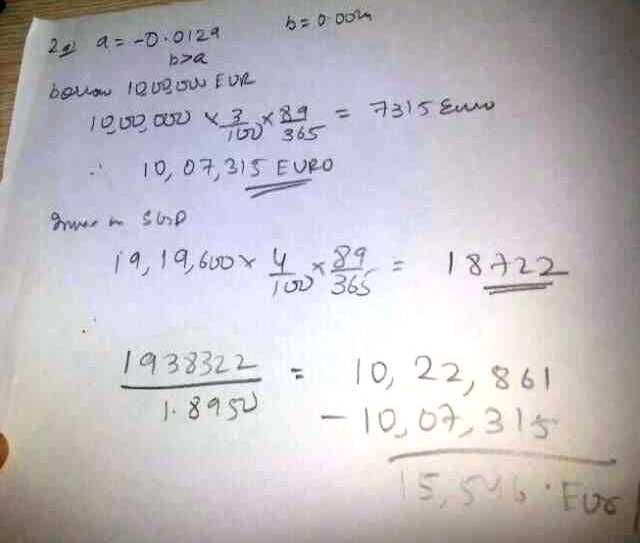 2 a) a = -0.0129 b = 0.0024
b>a
borrow 10,00,000 EUR
10,00,000 × 3/100 × 89/365 = 7315 Euro
∴ 10,07,315 EURO
in SGD
19,19,600 × 4/100 × 89/365 = 18722
1938322/1.8950 = 10,22,861
- 10,07,315
15,546 Eur